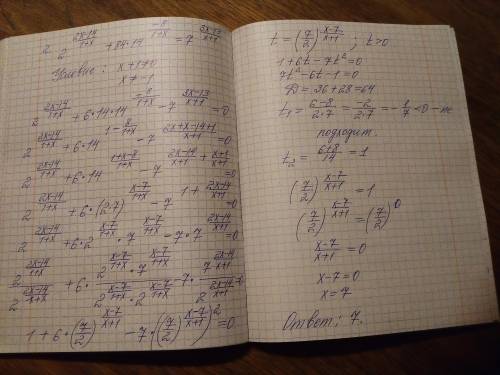 2^{\frac{2x-14}{1+x}} + 84 \cdot 14^{\frac{-8}{1+x}} = 7^{\frac{3x-13}{x+1}}
Условие: x+1≠0
x ≠ -1
2^{\frac{2x-14}{1+x}} + 6 \cdot 14 \cdot 14^{-\frac{8}{1+x}} - 7^{\frac{3x-13}{x+1}} = 0
2^{\frac{2x-14}{1+x}} + 6 \cdot 14^{1-\frac{8}{1+x}} - 7^{\frac{2x+x-14+1}{x+1}} = 0
2^{\frac{2x-14}{1+x}} + 6 \cdot 14^{\frac{1+x-8}{1+x}} - 7^{\frac{2x-14}{x+1}+\frac{x+1}{x+1}} = 0
2^{\frac{2x-14}{1+x}} + 6 \cdot (2 \cdot 7)^{\frac{x-7}{1+x}} - 7^{1+\frac{2x-14}{x+1}} = 0
2^{\frac{2x-14}{1+x}} + 6 \cdot 2^{\frac{x-7}{1+x}} \cdot 7^{\frac{x-7}{1+x}} - 7 \cdot 7^{\frac{2x-14}{x+1}} = 0
\frac{2^{\frac{2x-14}{1+x}}}{2^{\frac{2x-14}{1+x}}} + 6 \cdot \frac{2^{\frac{x-7}{1+x}} \cdot 7^{\frac{x-7}{1+x}}}{2^{\frac{x-7}{1+x}} \cdot 2^{\frac{x-7}{x+1}}} - 7 \cdot \frac{7^{\frac{2x-14}{x+1}}}{2^{\frac{2x-14}{x+1}}} = 0
1 + 6 \cdot (\frac{7}{2})^{\frac{x-7}{x+1}} - 7 \cdot ((\frac{7}{2})^{\frac{x-7}{x+1}})^2 = 0
t = (\frac{7}{2})^{\frac{x-7}{x+1}} ; t>0
1+6t-7t²=0
7t²-6t-1=0
D= 36+28=64
t₁ = \frac{6-8}{2 \cdot 7} = \frac{-2}{2 \cdot 7} = -\frac{1}{7} < 0 - не
подходит
t₂ = \frac{6+8}{14} = 1
(\frac{7}{2})^{\frac{x-7}{x+1}} = 1
(\frac{7}{2})^{\frac{x-7}{x+1}} = (\frac{7}{2})^0
\frac{x-7}{x+1} = 0
x-7=0
x=7
Ответ: 7.